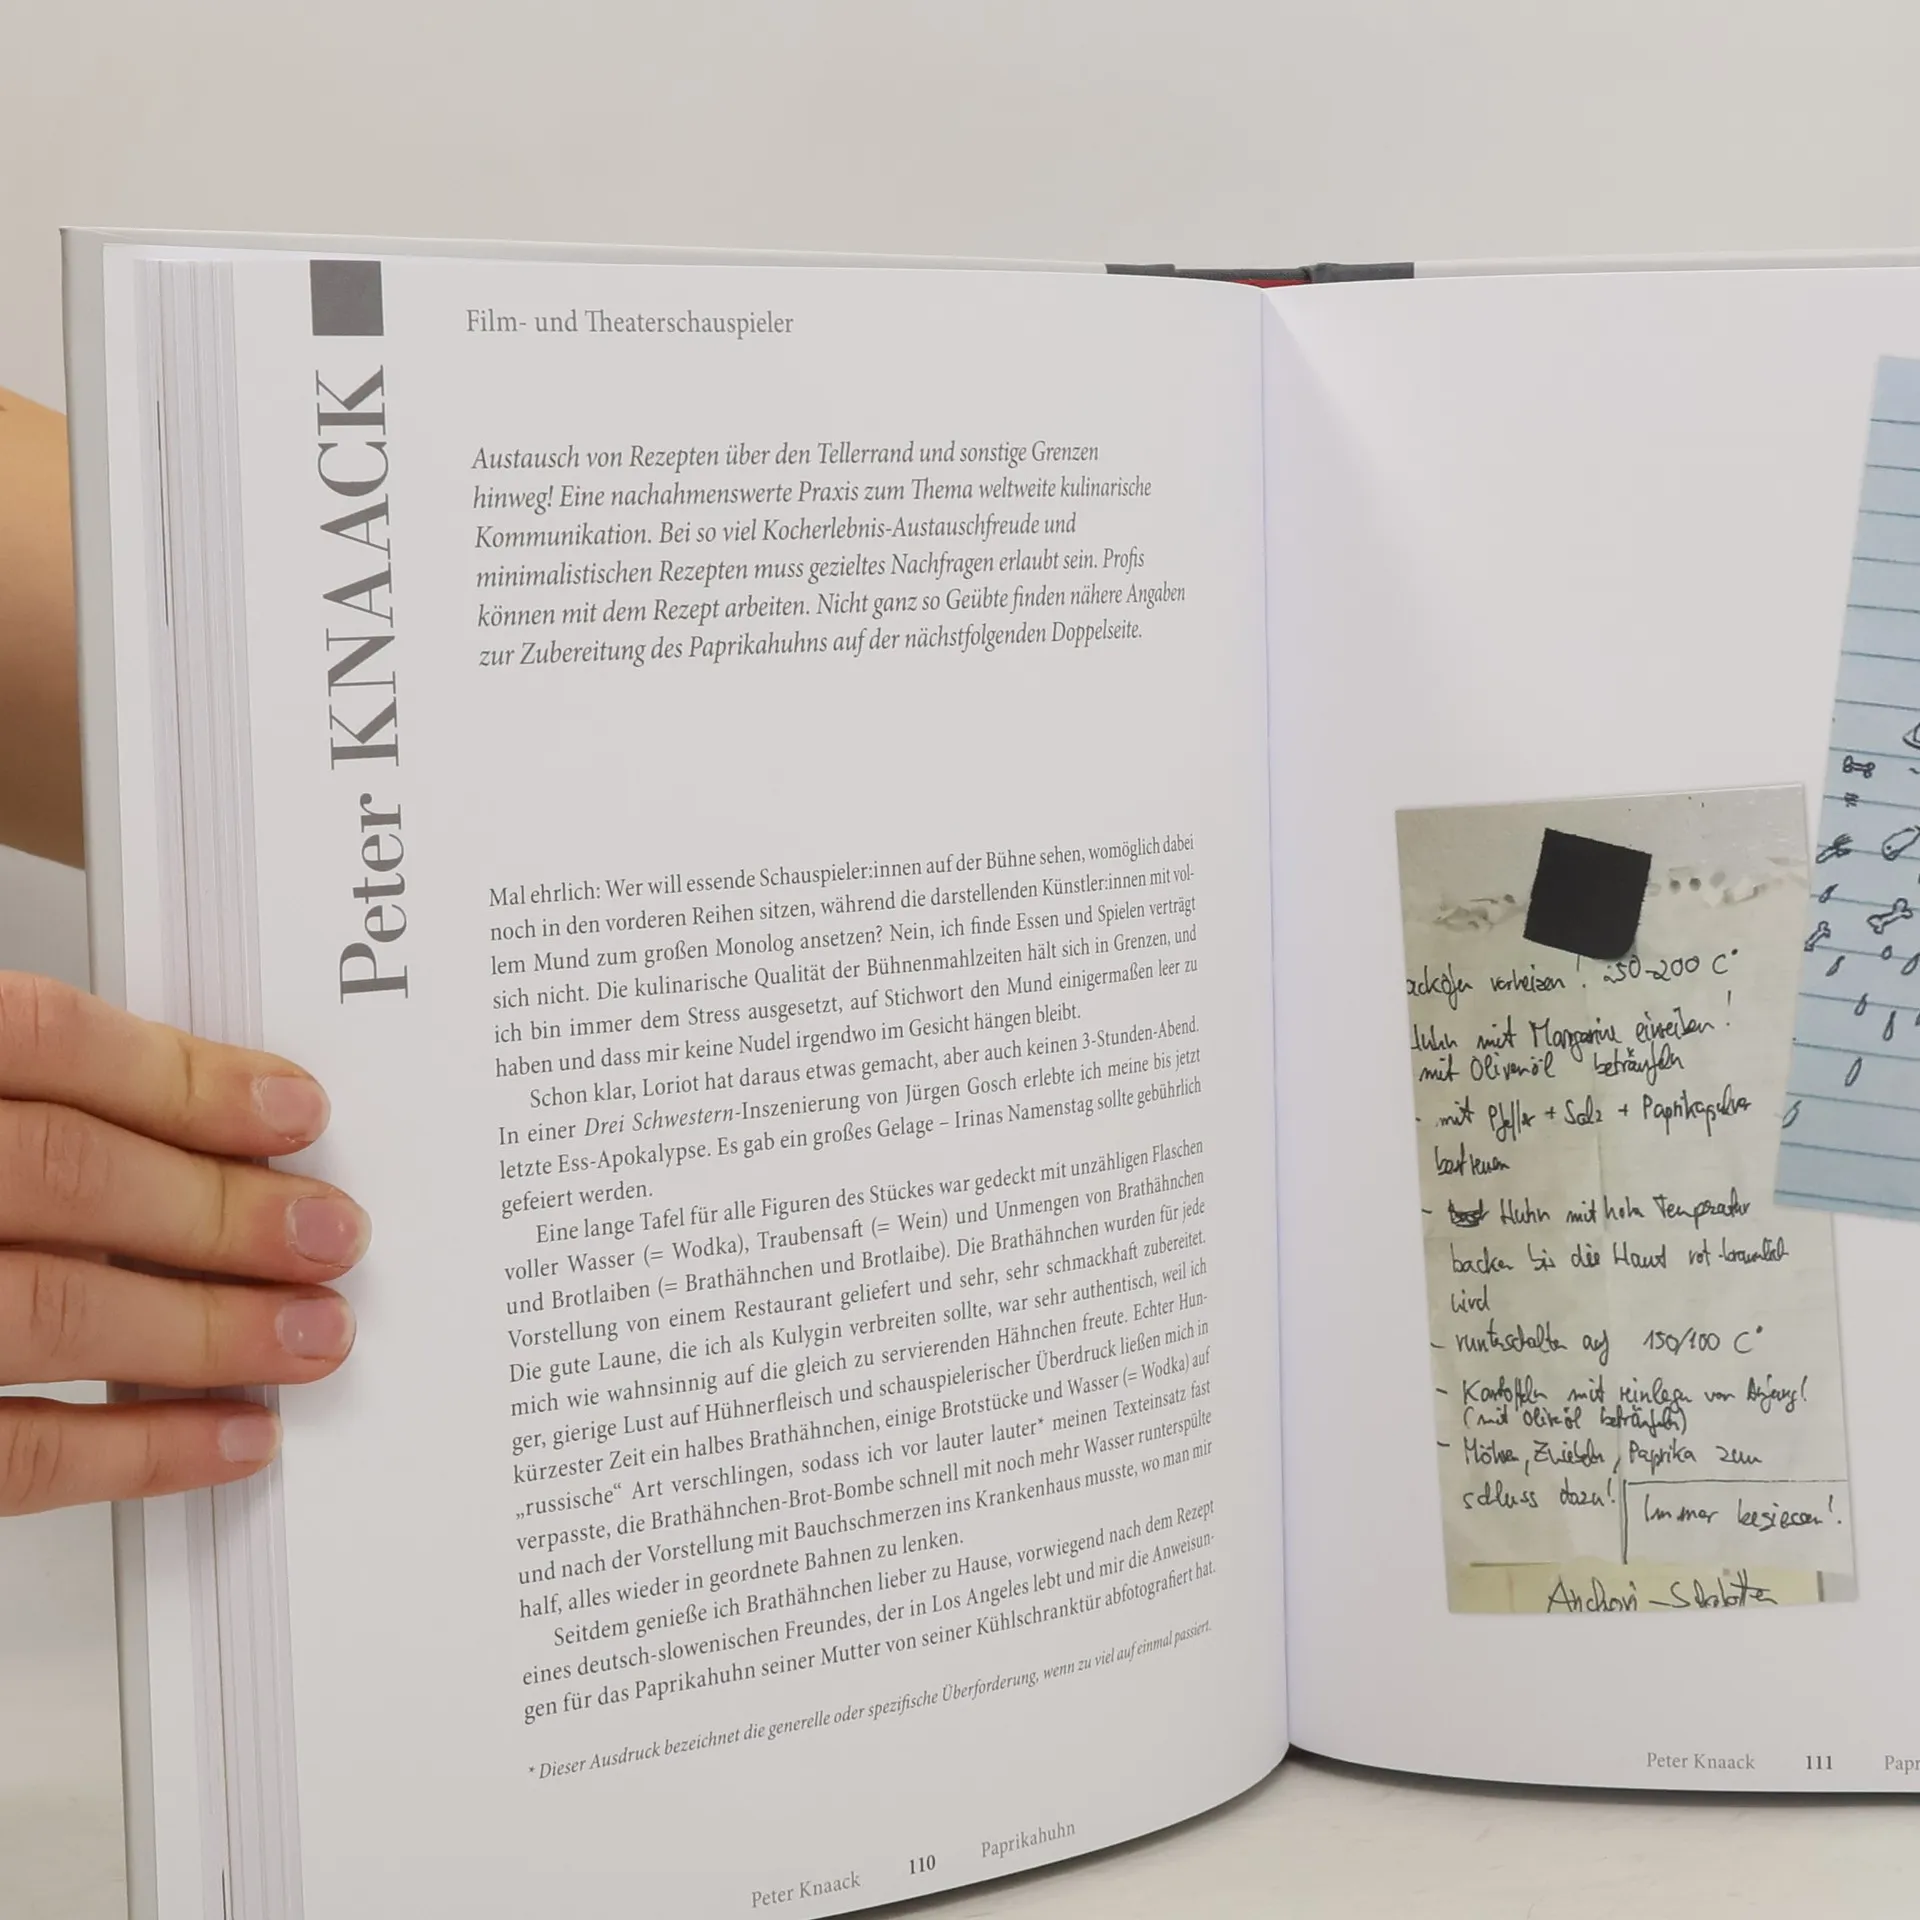 Peter KNAACK
Film- und Theaterschauspieler
Austausch von Rezepten über den Tellerrand und sonstige Grenzen
hinweg! Eine nachahmenswerte Praxis zum Thema weltweite kulinarische
Kommunikation. Bei so viel Kocherlebnis-Austauschfreude und
minimalistischen Rezepten muss gezieltes Nachfragen erlaubt sein. Profis
können mit dem Rezept arbeiten. Nicht ganz so Geübte finden nähere Angaben
zur Zubereitung des Paprikahuhns auf der nächstfolgenden Doppelseite.
Mal ehrlich: Wer will essende Schauspieler:innen auf der Bühne sehen, womöglich dabei
noch in den vorderen Reihen sitzen, während die darstellenden Künstler:innen mit vol-
lem Mund zum großen Monolog ansetzen? Nein, ich finde Essen und Spielen verträgt
sich nicht. Die kulinarische Qualität der Bühnenmahlzeiten hält sich in Grenzen, und
ich bin immer dem Stress ausgesetzt, auf Stichwort den Mund einigermaßen leer zu
haben und dass mir keine Nudel irgendwo im Gesicht hängen bleibt.
Schon klar, Loriot hat daraus etwas gemacht, aber auch keinen 3-Stunden-Abend.
In einer Drei Schwestern-Inszenierung von Jürgen Gosch erlebte ich meine bis jetzt
letzte Ess-Apokalypse. Es gab ein großes Gelage – Irinas Namenstag sollte gebührlich
gefeiert werden.
Eine lange Tafel für alle Figuren des Stückes war gedeckt mit unzähligen Flaschen
voller Wasser (= Wodka), Traubensaft (= Wein) und Unmengen von Brathähnchen
und Brotlaiben (= Brathähnchen und Brotlaibe). Die Brathähnchen wurden für jede
Vorstellung von einem Restaurant geliefert und sehr, sehr schmackhaft zubereitet.
Die gute Laune, die ich als Kulygin verbreiten sollte, war sehr authentisch, weil ich
mich wie wahnsinnig auf die gleich zu servierenden Hähnchen freute. Echter Hun-
ger, gierige Lust auf Hühnerfleisch und schauspielerischer Überdruck ließen mich in
kürzester Zeit ein halbes Brathähnchen, einige Brotstücke und Wasser (= Wodka) auf
„russische“ Art verschlingen, sodass ich vor lauter lauter* meinen Texteinsatz fast
verpasste, die Brathähnchen-Brot-Bombe schnell mit noch mehr Wasser runterspülte
und nach der Vorstellung mit Bauchschmerzen ins Krankenhaus musste, wo man mir
half, alles wieder in geordnete Bahnen zu lenken.
Seitdem genieße ich Brathähnchen lieber zu Hause, vorwiegend nach dem Rezept
eines deutsch-slowenischen Freundes, der in Los Angeles lebt und mir die Anweisun-
gen für das Paprikahuhn seiner Mutter von seiner Kühlschranktür abfotografiert hat.
* Dieser Ausdruck bezeichnet die generelle oder spezifische Überforderung, wenn zu viel auf einmal passiert.
Peter Knaack 110 Paprikahuhn
ackofen vorheizen! 250-200 C°
Huhn mit Margarine einreiben!
mit Olivenöl beträufeln
- mit Pfeffer + Salz + Paprikapulver
bestreuen
- Huhn mit hoher Temperatur
backen bis die Haut rot-bräunlich
wird
- runterschalten auf 150/100 C°
- Kartoffeln mit reinlegen von Anfang!
(mit Olivenöl beträufeln)
- Möhren, Zwiebeln, Paprika zum
schluss dazu!
Immer begiessen!
Anchovi - Schalotten
Peter Knaack 111 Papr